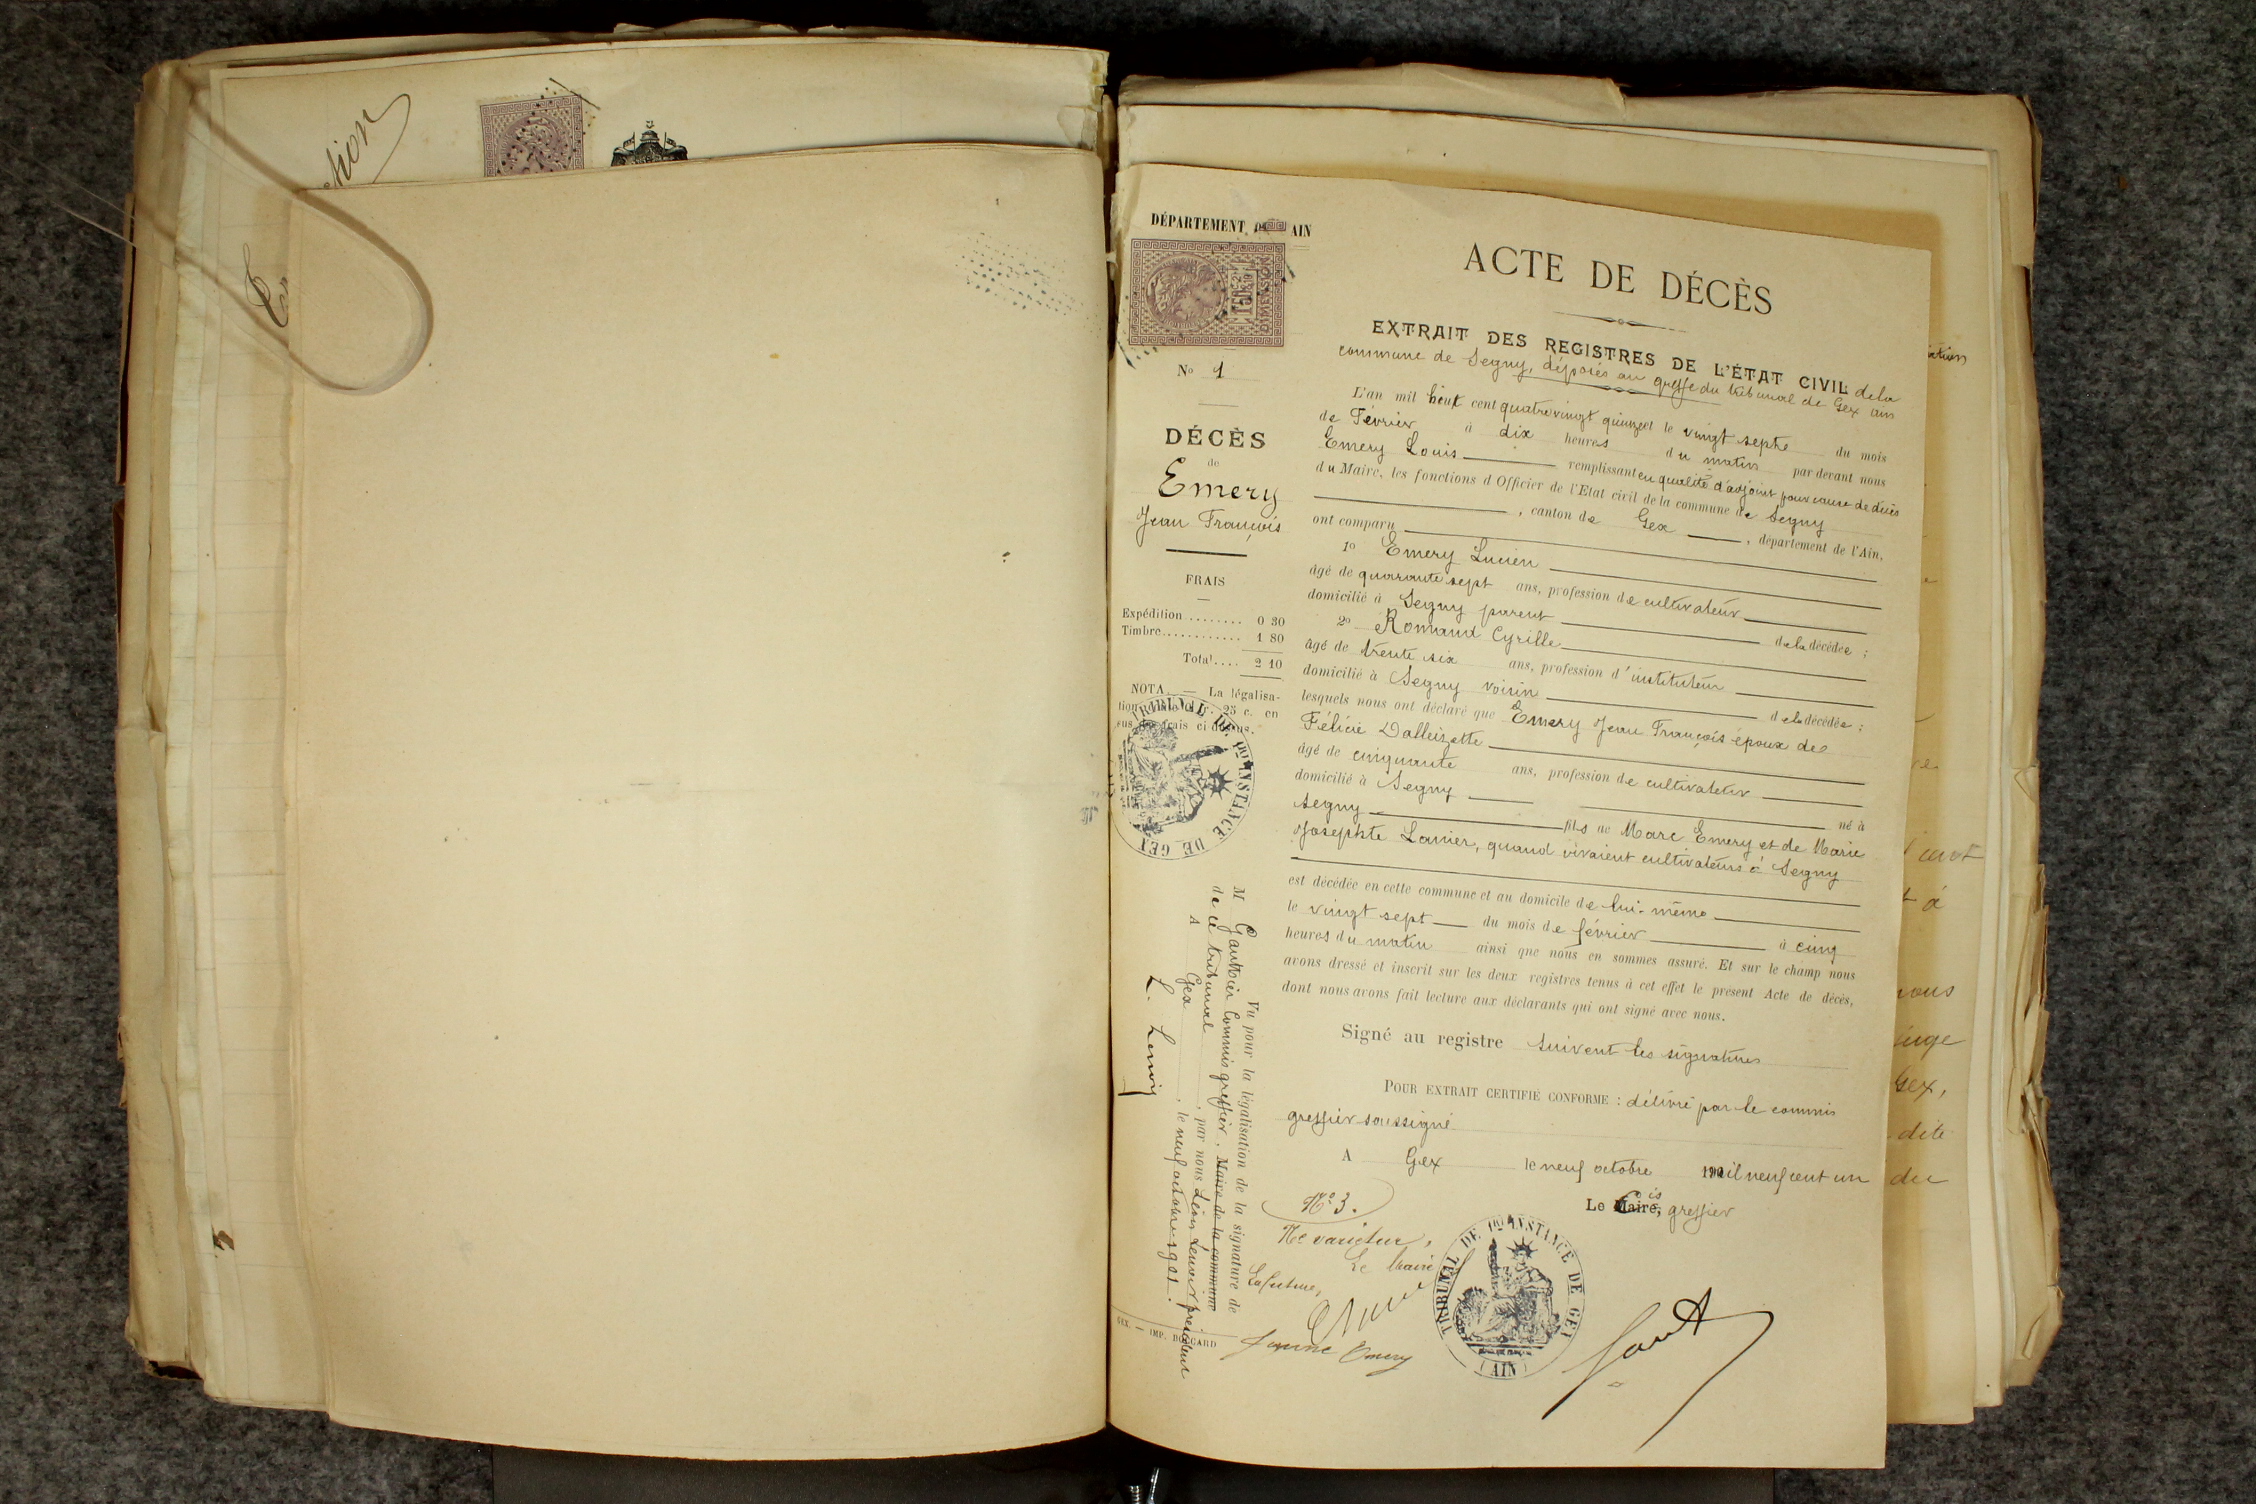 DÉPARTEMENT DE L'AIN
1f50c
DIMENSION
N° 1
DÉCÈS
de
Emery
Jean François
FRAIS
Expédition ........ 0 30
Timbre ............ 1 80
Total .... 2 10
NOTA. — La légalisa-
25 c. en
sus des frais ci dessus.
TRIBUNAL DE 1ère INSTANCE DE GEX
Vu pour la légalisation de la signature de
M Gauthier Commis greffier. Maire de la commune
de ce tribunal, par nous Léon Lenoir président
A Gex, le neuf octobre 1901.
L. Lenoir
GEX. — IMP. BOCCARD
ACTE DE DÉCÈS
EXTRAIT DES REGISTRES DE L'ÉTAT CIVIL de la
commune de Segny, déposés au greffe du tribunal de Gex ain
L'an mil huit cent quatre vingt quinze et le vingt septe du mois
de Février à dix heures du matin par devant nous
Emery Louis remplissant en qualité d'adjoint pour cause de décès
du Maire, les fonctions d'Officier de l'Etat civil de la commune de Segny
, canton de Gex, département de l'Ain,
ont comparu
1° Emery Lucien
âgé de quarante sept ans, profession de cultivateur
domicilié à Segny parent de la décédée ;
2° Romand Cyrille
âgé de trente six ans, profession d'instituteur
domicilié à Segny voisin de la décédée ;
lesquels nous ont déclaré que Emery Jean François époux de
Félicie Dalleizette
âgé de cinquante ans, profession de cultivateur
domicilié à Segny né à
Segny fils de Marc Emery et de Marie
Josephte Lanier, quand vivaient cultivateurs à Segny
est décédée en cette commune et au domicile de lui-même
le vingt sept du mois de février à cinq
heures du matin ainsi que nous en sommes assuré. Et sur le champ nous
avons dressé et inscrit sur les deux registres tenus à cet effet le présent Acte de décès,
dont nous avons fait lecture aux déclarants qui ont signé avec nous.
Signé au registre suivent les signatures
POUR EXTRAIT CERTIFIÉ CONFORME : délivré par le commis
greffier soussigné
A Gex le neuf octobre mil neuf cent un
Le Maire, greffier
N° 3.
Ne varietur,
Le Maire
La future,
Jeanne Emery
TRIBUNAL DE 1ère INSTANCE DE GEX
(AIN)
cent
à
nous
juge
Gex,
dite
du